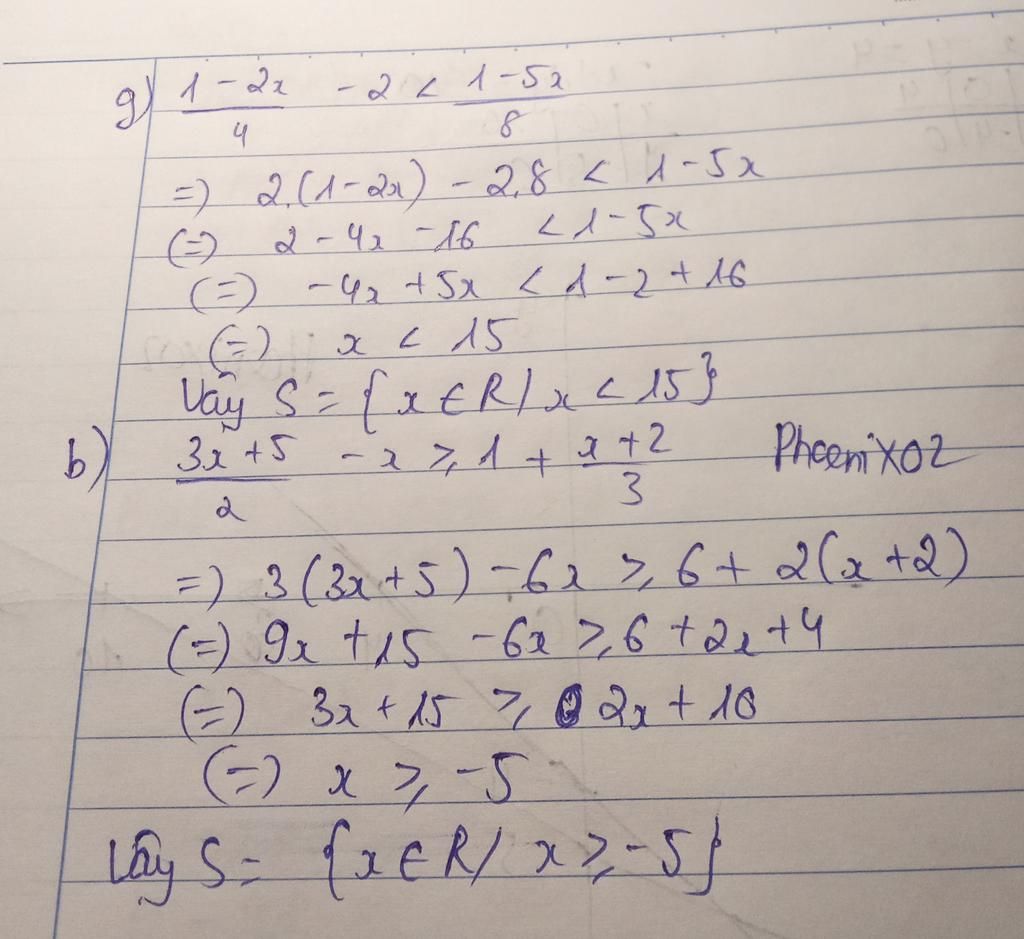 g) \frac{1-2x}{4} - 2 < \frac{1-5x}{8}
=) 2.(1-2x) - 2.8 < 1-5x
(=) 2-4x -16 < 1-5x
(=) -4x +5x < 1-2+16
(=) x < 15
Vậy S = {x ∈ R / x < 15}
b) \frac{3x+5}{2} - x ≥ 1 + \frac{x+2}{3} Phoenix02
=) 3(3x+5) -6x ≥ 6+ 2(x+2)
(=) 9x +15 -6x ≥ 6 +2x+4
(=) 3x +15 ≥ 2x + 10
(=) x ≥ -5
Vậy S = {x ∈ R / x ≥ -5}